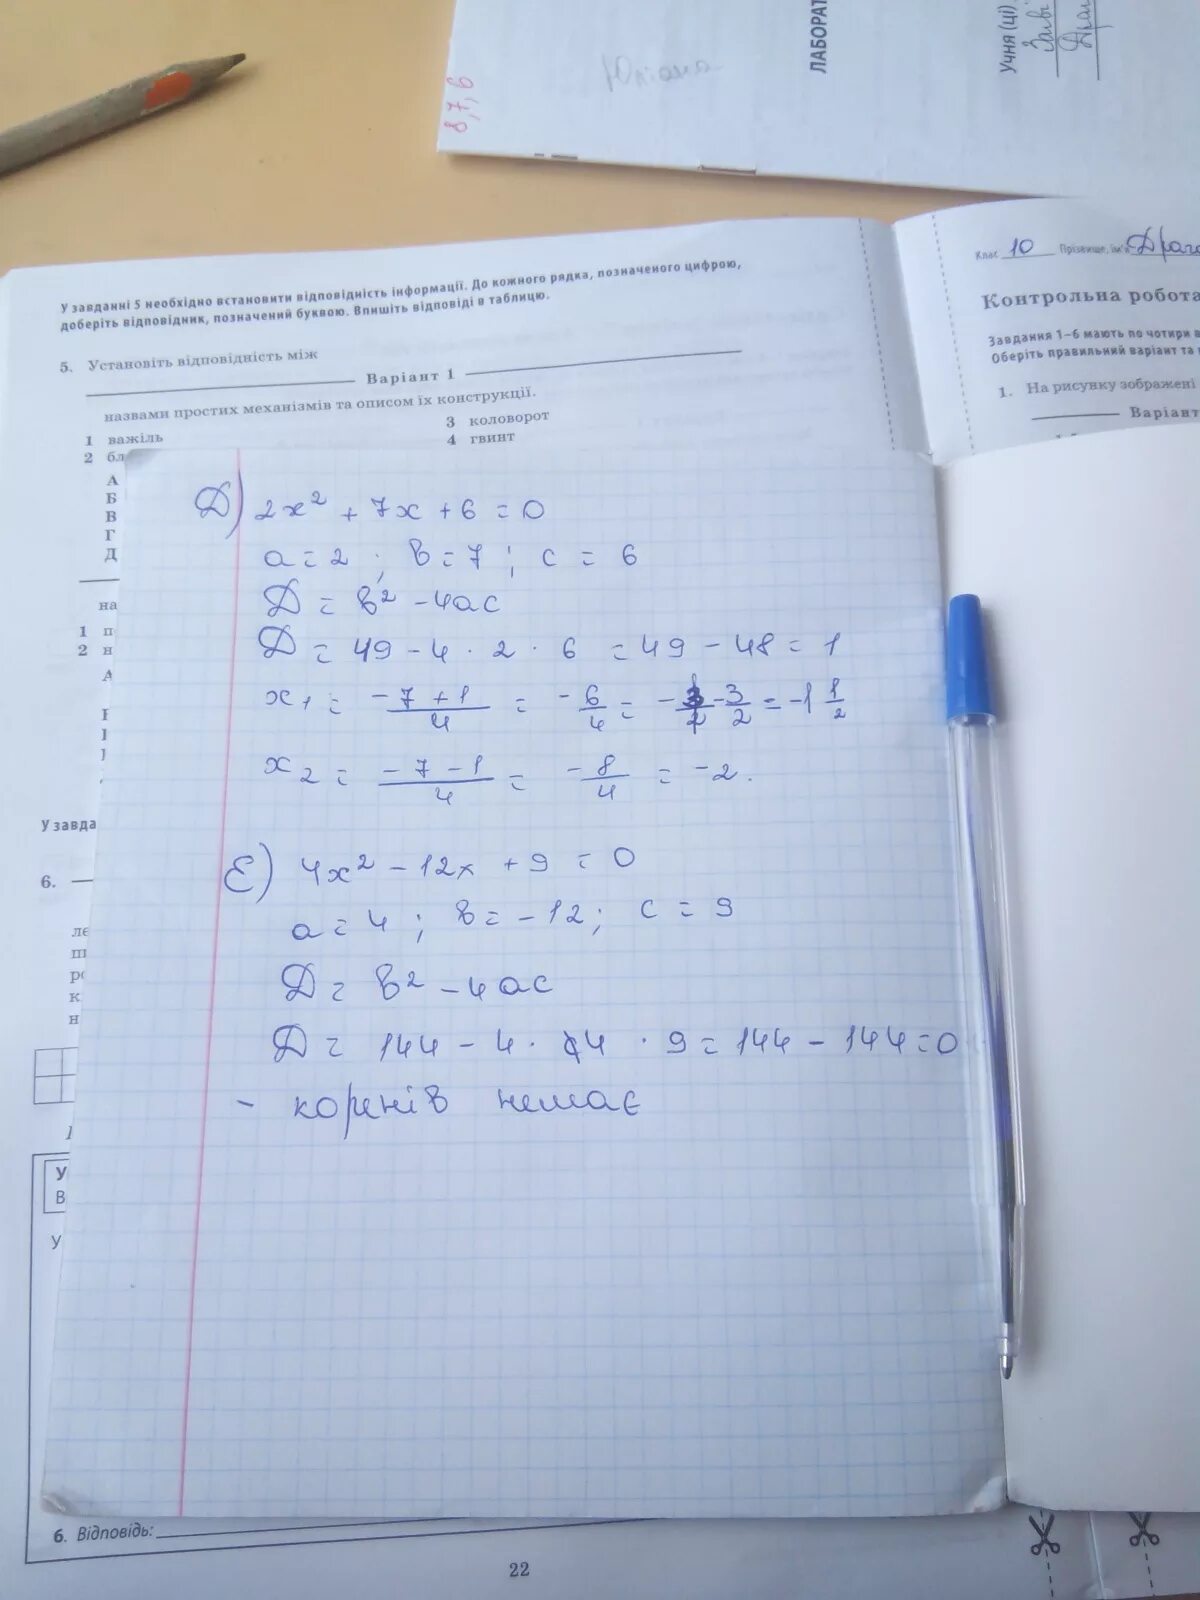 8,7,6
Юліана
ЛАБОРАТ
Учня (ці)
Клас 10 Прізвище, ім'я Драг
Контрольна робота
Завдання 1–6 мають по чотири в
Оберіть правильний варіант та
1. На рисунку зображені
Варіант
У завданні 5 необхідно встановити відповідність інформації. До кожного рядка, позначеного цифрою,
доберіть відповідник, позначений буквою. Впишіть відповіді в таблицю.
5. Установіть відповідність між
Варіант 1
назвами простих механізмів та описом їх конструкції.
1 важіль
3 коловорот
2 бл
4 гвинт
А
Б
В
Г
Д
на
1 п
2 н
А
У завда
6.
ле
ш
ро
к
н
У
В
У
Д) 2x² + 7x + 6 = 0
a = 2 ; в = 7 ; c = 6
Д = в² - 4ac
Д = 49 - 4 · 2 · 6 = 49 - 48 = 1
x₁ = -7+1/4 = -6/4 = -3/2 = -1 1/2
x₂ = -7-1/4 = -8/4 = -2.
Е) 4x² - 12x + 9 = 0
a = 4 ; в = -12 ; c = 9
Д = в² - 4ac
Д = 144 - 4 · 4 · 9 = 144 - 144 = 0
- коренів немає
6. Відповідь:
22